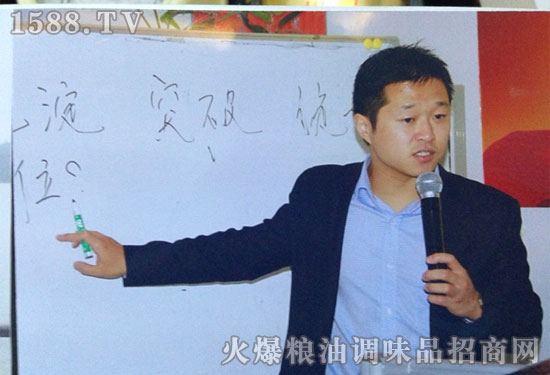 1588.TV
淀 突破 统
位?
火爆粮油调味品招商网